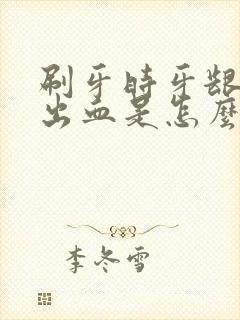 刷牙时牙龈
出血是怎麼
李冬雪